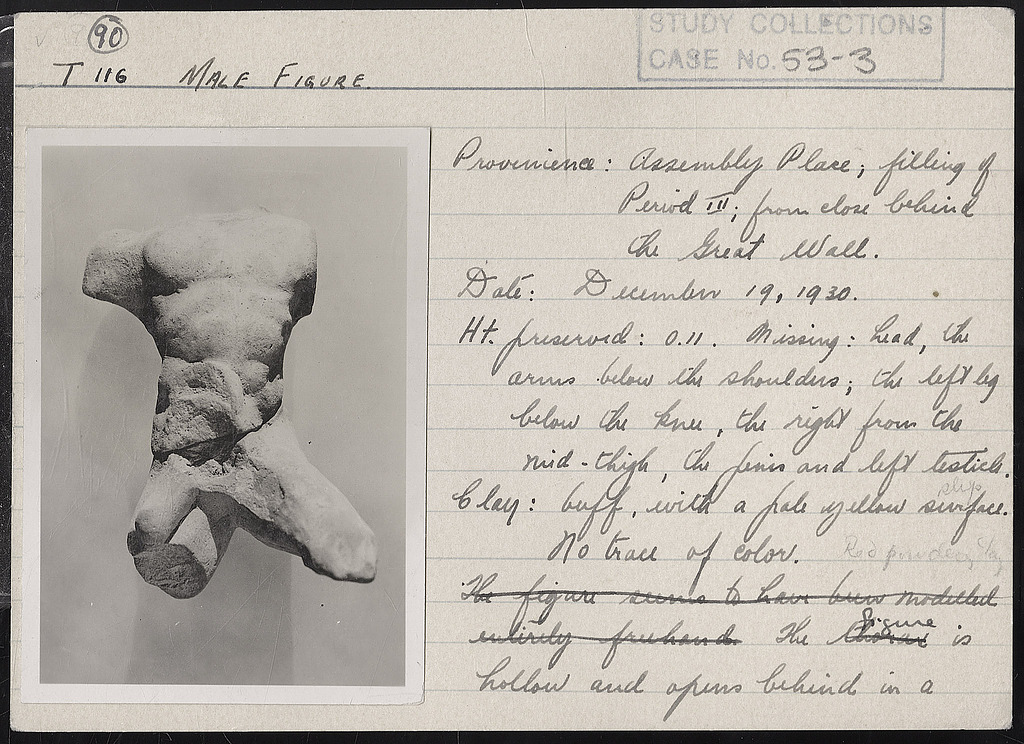 90
STUDY COLLECTIONS
CASE No. 53-3
T 116 MALE FIGURE.
Provenience: Assembly Place; filling of
Period III; from close behind
the Great Wall.
Date: December 19, 1930.
Ht. preserved: 0.11. Missing: head, the
arms below the shoulders; the left leg
below the knee, the right from the
mid-thigh, the penis and left testicle.
slip
Clay: buff, with a pale yellow surface.
No trace of color. Red powdery
The figure seems to have been modelled
figure
entirely freehand. The thorax is
hollow and opens behind in a